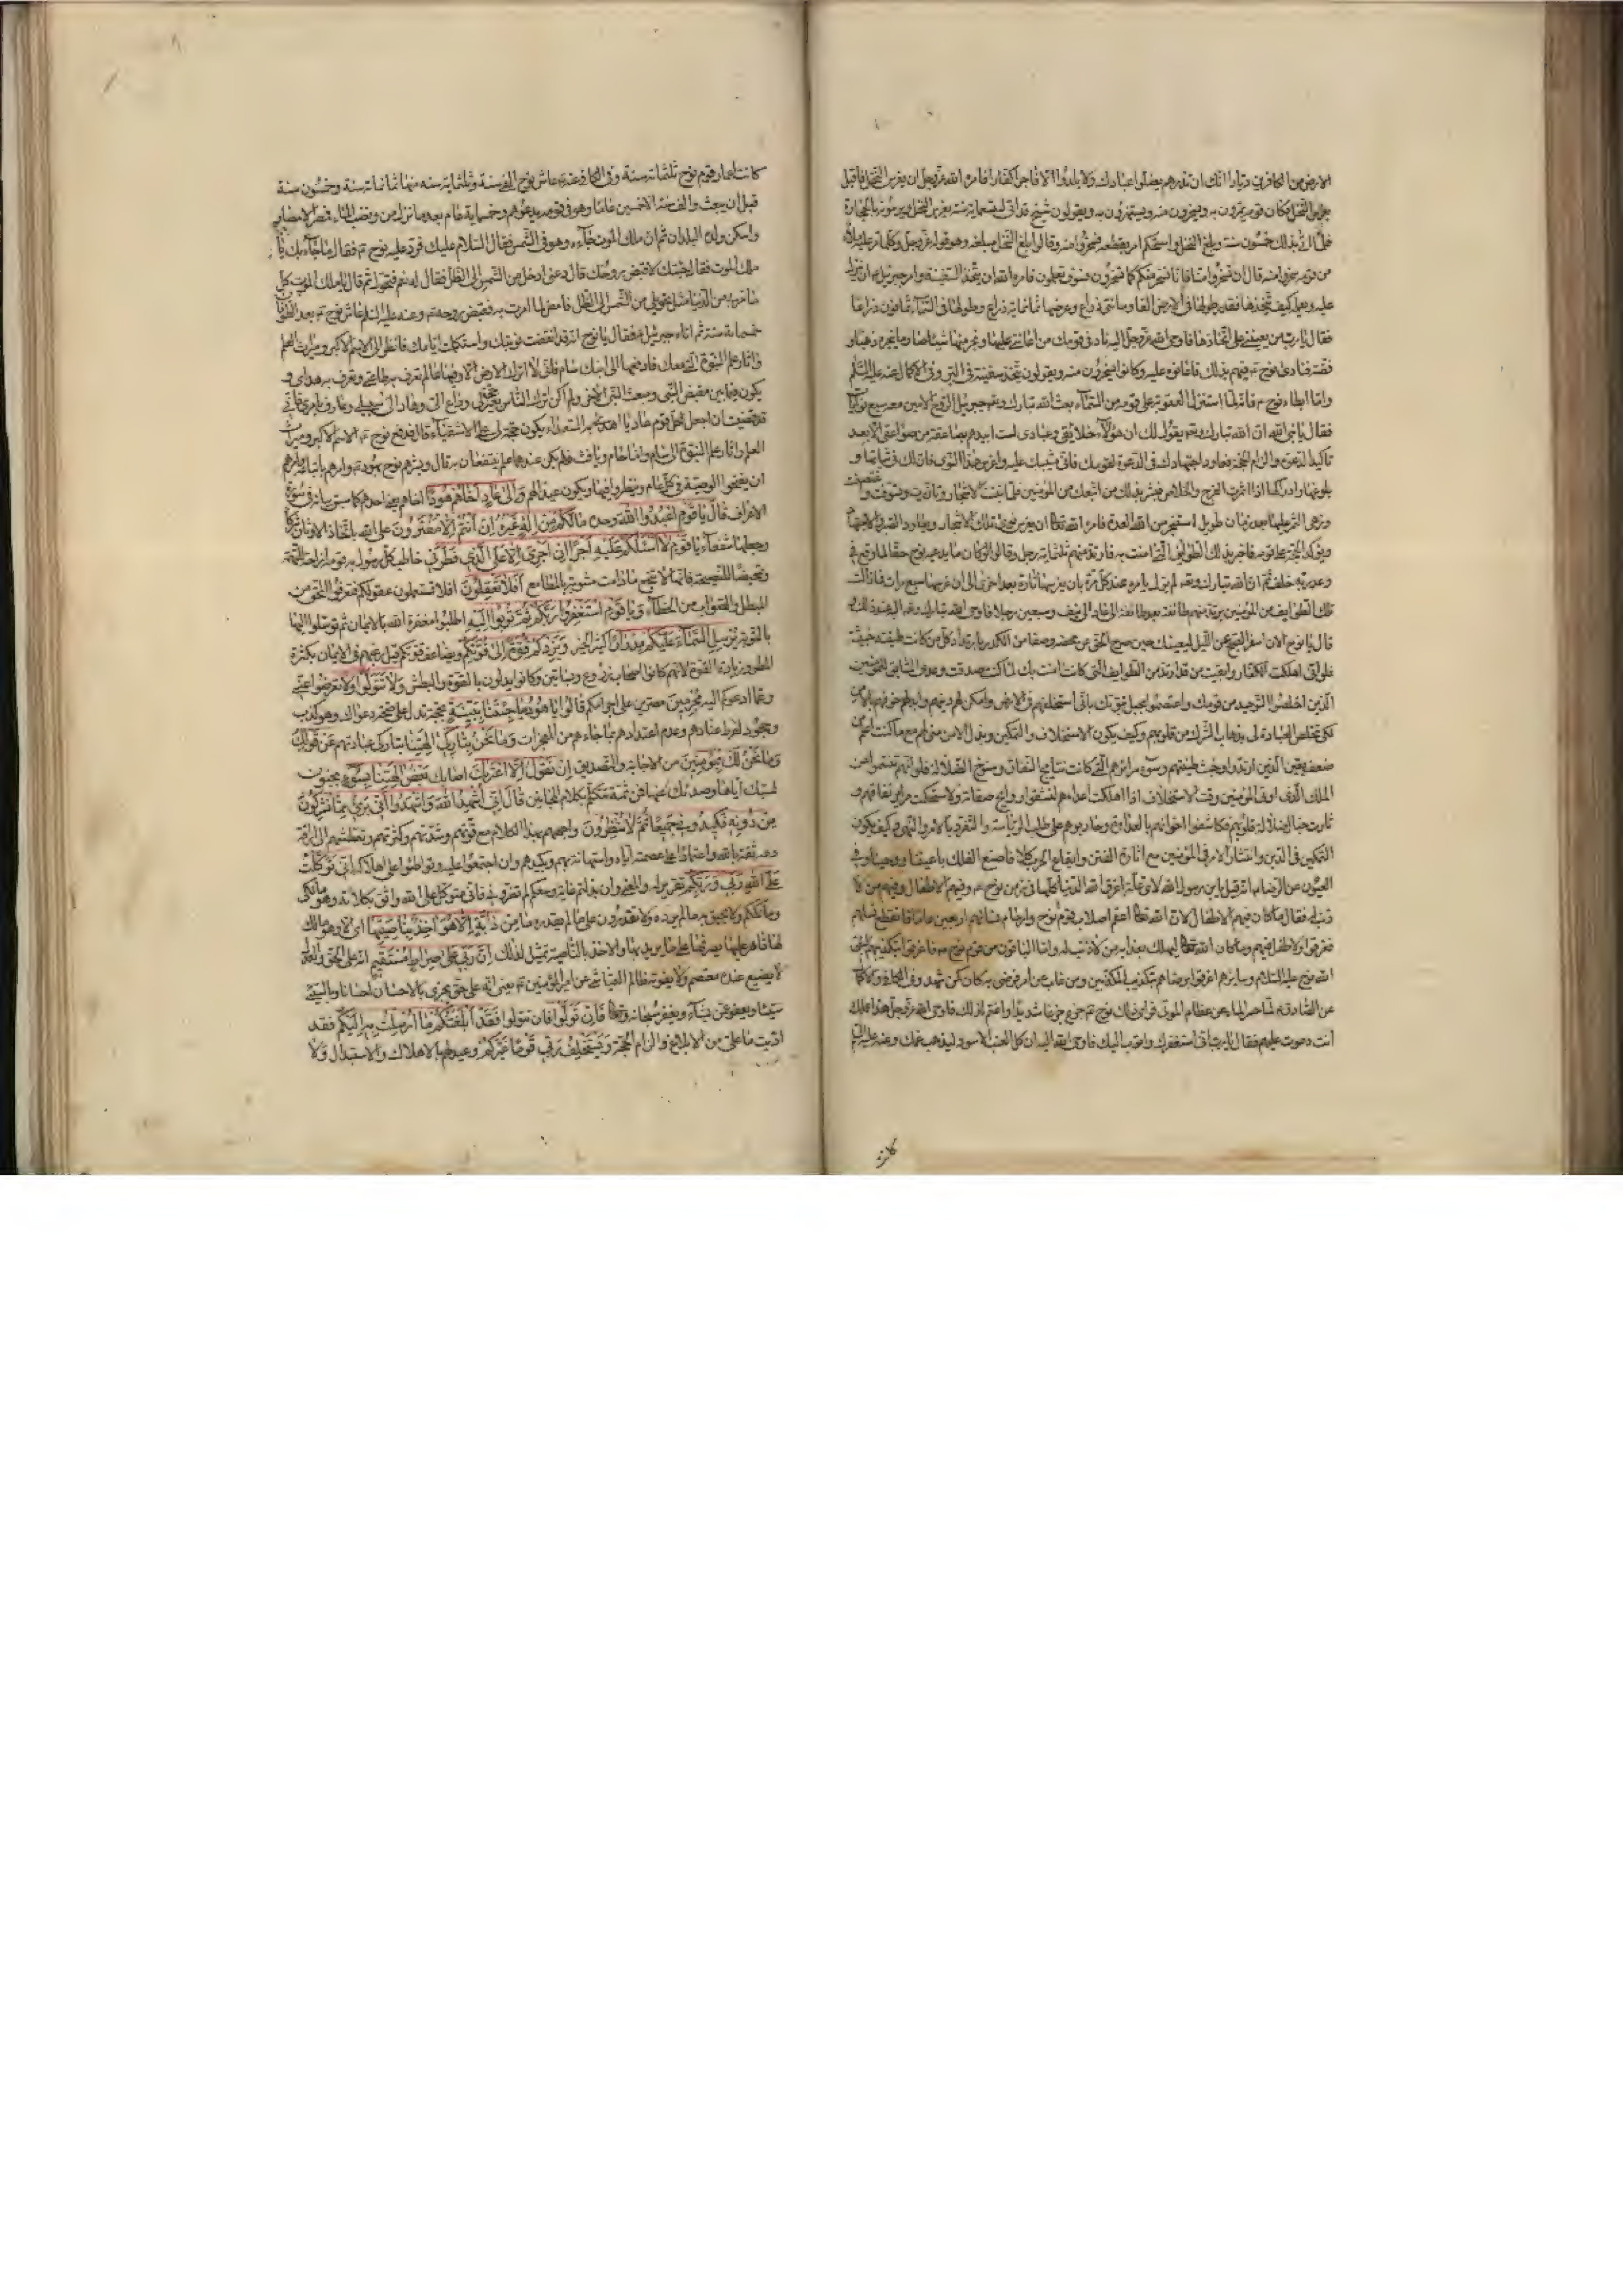 الارض من الكافرين ديارا انك ان تذرهم يضلوا عبادك ولا يلدوا الا فاجرا كفارا فامره الله عز وجل ان يغرس النخل فاقبل
يغرس النخل فكان قومه يمرون به ويسخرون منه ويستهزؤن به ويقولون شيخ قد اتى له تسعمائة سنة يغرس النخل ويرمونه بالحجارة
فلما اتى لذلك خمسون سنة وبلغ النخل واستحكم امر بقطعه فسخروا منه وقالوا بلغ النخل مبلغه وهو قوله عز وجل وكلما مر عليه ملأ
من قومه سخروا منه قال ان تسخروا منا فانا نسخر منكم كما تسخرون فسوف تعلمون فامره الله ان يتخذ السفينة وامر جبرئيل ان ينزل
عليه ويعلمه كيف يتخذها فقدر طولها في الارض الفا ومائتي ذراع وعرضها ثمانمائة ذراع وطولها في السماء ثمانون ذراعا
فقال يا رب من يعينني على اتخاذها فاوحى الله عز وجل اليه ناد في قومك من اعانني عليها ونجر منها شيئا صار ما ينجره ذهبا و
فضة فنادى نوح فيهم بذلك فاعانوه عليه وكانوا يسخرون منه ويقولون يتخذ سفينة في البر وفي الاكمال عنه عليه السلم
واما ابطاء نوح فانه لما استنزل العقوبة على قومه من السماء بعث الله تبارك وتعالى جبرئيل الروح الامين معه سبع نوايات
فقال يا نبي الله ان الله تبارك وتعالى يقول لك ان هؤلاء خلائقي وعبادي لست ابيدهم بصاعقة من صواعقي الا بعد
تأكيد الدعوة والزام الحجة فعاود اجتهادك في الدعوة لقومك فاني مثيبك عليه واغرس هذا النوى فان لك في نباتها و
بلوغها وادراكها اذا اثمرت الفرج والخلاص فبشر بذلك من اتبعك من المؤمنين فلما نبتت الاشجار وتأزرت وتسوقت و
وزهى الثمر عليها بعد زمان طويل استنجز من الله العدة فامره الله تعالى ان يغرس من نوى تلك الاشجار ويعاود الصبر والاجتهاد
ويؤكد الحجة على قومه فاخبر بذلك الطوايف التي امنت به فارتد منهم ثلثمائة رجل وقالوا لو كان ما يدعيه نوح حقا لما وقع في
وعد ربه خلف ثم ان الله تبارك وتعالى لم يزل يامره عند كل مرة بان يغرسها تارة بعد اخرى الى ان غرسها سبع مرات فما زالت
تلك الطوايف من المؤمنين يرتد منهم طائفة بعد طائفة الى ان عاد الى نيف وسبعين رجلا فاوحى الله تبارك وتعالى اليه عند ذلك و
قال يا نوح الان اسفر الصبح عن الليل لعينك حين صرح الحق عن محضه وصفا من الكدر بارتداد كل من كانت طينته خبيثة
فلو اني اهلكت الكفار وابقيت من قد ارتد من الطوايف التي كانت امنت بك لما كنت صدقت وعدي السابق للمؤمنين
الذين اخلصوا التوحيد من قومك واعتصموا بحبل نبوتك باني استخلفهم في الارض وامكن لهم دينهم وابدل خوفهم بالامن
لكي تخلص العبادة لي بذهاب الشرك من قلوبهم وكيف يكون الاستخلاف والتمكين وبدل الامن مني لهم مع ما كنت اعلم من
ضعف يقين الذين ارتدوا وخبث طينتهم وسوء سرائرهم التي كانت نتايج النفاق وسنوح الضلالة فلو انهم تنسموا من
الملك الذي اوتي المؤمنين وقت الاستخلاف اذا اهلكت اعداءهم لنشقوا روايح صفاته ولاستحكمت مراير نفاقهم و
ثارت خبال ضلالة قلوبهم فكاشفوا اخوانهم بالعداوة وحاربوهم على طلب الرياسة والتفرد بالامر والنهي وكيف يكون
التمكين في الدين وانتشار الامر في المؤمنين مع اثارة الفتن وايقاع الحروب كلا فاصنع الفلك باعيننا ووحينا وفي
العيون عن الرضا انه قيل يابن رسول الله لاي علة اغرق الله الدنيا كلها في زمن نوح وفيهم الاطفال وفيهم من لا
ذنب له فقال ما كان فيهم الاطفال لان الله تعالى اعقم اصلاب قوم نوح وارحام نسائهم اربعين عاما فانقطع نسلهم
فغرقوا ولا طفل فيهم وما كان الله تعالى ليهلك بعذابه من لا ذنب له واما الباقون من قوم نوح فاغرقوا لتكذيبهم لنبي
الله نوح عليه السلام وسايرهم اغرقوا برضاهم بتكذيب المكذبين ومن غاب عن امر فرضي به كان كمن شهده وفي الكافي
عن الصادق لما حسر الماء عن عظام الموتى فراى ذلك نوح جزع جزعا شديدا واغتم لذلك فاوحى الله عز وجل هذا عملك
انت دعوت عليهم فقال يا رب اني استغفرك واتوب اليك فاوحى الله اليه ان كل العنب الاسود ليذهب غمك وعنه عليه السلم
كانت
كانت اعمار قوم نوح ثلثمائة سنة وفي الكافي عنه عاش نوح الفي سنة وثلثمائة سنه منها ثمانمائة سنة وخمسون سنة
قبل ان يبعث والف سنة الا خمسين عاما وهو في قومه يدعوهم وخمسمائة عام بعد ما نزل من ونضب الماء فمصر الامصار
واسكن ولده البلدان ثم ان ملك الموت جاءه وهو في الشمس فقال السلام عليك فرد عليه نوح فقال ما جاء بك يا
ملك الموت فقال جئتك لاقبض روحك قال دعني ادخل من الشمس الى الظل فقال له نعم فتحول ثم قال يا ملك الموت كل
ما مر بي من الدنيا مثل تحويلي من الشمس الى الظل فامض لما امرت به فقبض روحه وعنه عليه السلم عاش نوح بعد الطوفان
خمسمائة سنة ثم اتاه جبرئيل فقال يا نوح انه قد انقضت نوبتك واستكملت ايامك فانظر الى الاسم الاكبر وميراث العلم
واثار علم النبوة التي معك فادفعها الى ابنك سام فاني لا اترك الارض الا وفيها عالم تعرف به طاعتي ويعرف به هداي و
يكون نجاة فيما بين مقبض النبي ومبعث النبي الاخر ولم اكن اترك الناس بغير حجة لي وداع الي وهاد الى سبيلي وعارف بامري فاني
قد قضيت ان اجعل لكل قوم هاديا اهدي به السعداء ويكون حجة لي على الاشقياء قال فدفع نوح الاسم الاكبر وميراث
العلم واثار علم النبوة الى سام واما حام ويافث فلم يكن عندهما علم ينتفعان به قال وبشرهم نوح بهود وامرهم باتباعه وامرهم
ان يفتحوا الوصية في كل عام وينظروا فيها ويكون عيدا لهم والى عاد اخاهم هودا اخاهم يعني احدهم كما سبق بيانه في سورة
الاعراف قال يا قوم اعبدوا الله وحده ما لكم من اله غيره ان انتم الا مفترون على الله باتخاذ الاوثان شركاء
وجعلها شفعاء يا قوم لا اسئلكم عليه اجرا ان اجري الا على الذي فطرني خاطب كل رسول به قومه ازاحة للتهمة
وتمحيضا للنصيحة فانها لا تنجع ما دامت مشوبة بالمطامع افلا تعقلون افلا تستعملون عقولكم فتعرفوا المحق من
المبطل والصواب من الخطاء ويا قوم استغفروا ربكم ثم توبوا اليه اطلبوا مغفرة الله بالايمان ثم توسلوا اليها
بالتوبة يرسل السماء عليكم مدرارا كثير الخير ويزدكم قوة الى قوتكم ويضاعف قوتكم قيل رغبهم في الايمان بكثرة
المطر وزيادة القوة لانهم كانوا اصحاب زروع وبساتين وكانوا يدلون بالقوة والبطش ولا تتولوا ولا تعرضوا عني
وعما ادعوكم اليه مجرمين مصرين على اجرامكم قالوا يا هود ما جئتنا ببينة بحجة تدل على صحة دعواك وهو كذب
وجحود لفرط عنادهم وعدم اعتدادهم بما جاءهم من المعجزات وما نحن بتاركي الهتنا بتاركي عبادتهم عن قولك
وما نحن لك بمؤمنين من الاجابة والتصديق ان نقول الا اعتريك اصابك بعض الهتنا بسوء بجنون
لسبك اياها وصدك عنها فمن ثمة تتكلم بكلام المجانين قال اني اشهد الله واشهدوا اني بريء مما تشركون
من دونه فكيدوني جميعا ثم لا تنظرون واجههم بهذا الكلام مع قوتهم وشدتهم وكثرتهم وتعطشهم الى اراقة
دمه ثقة بالله واعتمادا على عصمته اياه واستهانة بهم وبكيدهم وان اجتمعوا عليه وتواطئوا على اهلاكه اني توكلت
على الله ربي وربكم تقرير له والمعنى وان بذلتم غاية وسعكم لم تضروني فاني متوكل على الله واثق بكلائته وهو مالكي
ومالككم ولا يحيق بي ما لم يرده ولا تقدرون على ما لم يقدره ما من دابة الا هو اخذ بناصيتها اي الا وهو مالك
لها قاهر عليها يصرفها على ما يريد بها والاخذ بالناصية تمثيل لذلك ان ربي على صراط مستقيم انه على الحق والعدل
لا يضيع عنده معتصم ولا يفوته ظالم العياشي عن امير المؤمنين يعني انه على حق يجزي بالاحسان احسانا وبالسيئ
سيئا ويعفو عمن يشاء ويغفر سبحانه وتعالى فان تولوا فان تتولوا فقد ابلغتكم ما ارسلت به اليكم فقد
اديت ما علي من الابلاغ والزام الحجة ويستخلف ربي قوما غيركم وعيد لهم بالاهلاك والاستبدال ولا